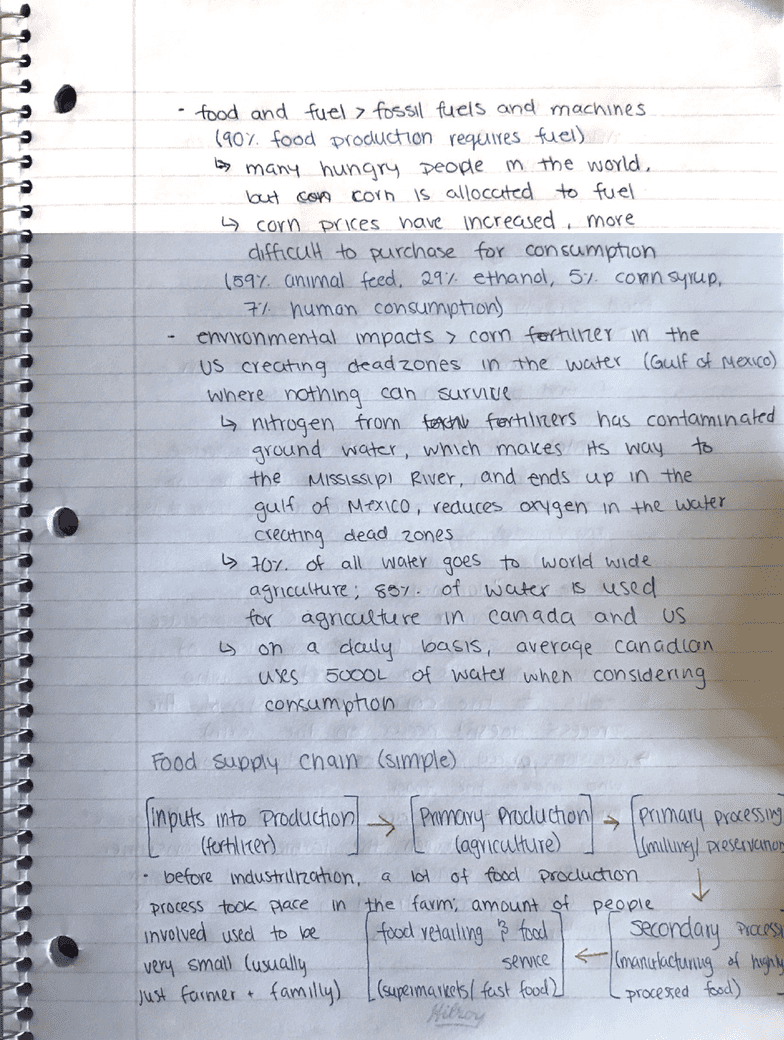 - food and fuel > fossil fuels and machines
(90% food production requires fuel)
↳ many hungry people in the world,
but corn is allocated to fuel
↳ corn prices have increased, more
difficult to purchase for consumption
(59% animal feed, 29% ethanal, 5% corn syrup,
7% human consumption)
- environmental impacts > corn fertilizer in the
US creating deadzones in the water (Gulf of Mexico)
where nothing can survive
↳ nitrogen from fertilizers has contaminated
ground water, which makes its way to
the Mississipi River, and ends up in the
gulf of Mexico, reduces oxygen in the water
creating dead zones
↳ 70% of all water goes to world wide
agriculture; 85% of water is used
for agriculture in canada and US
↳ on a daily basis, average canadian
uses 5000L of water when considering
consumption
Food supply chain (simple)
[inputs into production] → [primary production] → [primary processing
(fertilizer) (agriculture) (milling/ preservation
- before industrilization, a lot of food production
process took place in the farm; amount of people
involved used to be
very small (usually
just farmer + familly)
[secondary process
(manufacturing of highly
processed food)]
←
[food retailing & food
service
(supermarkets/ fast food)]
Hilroy